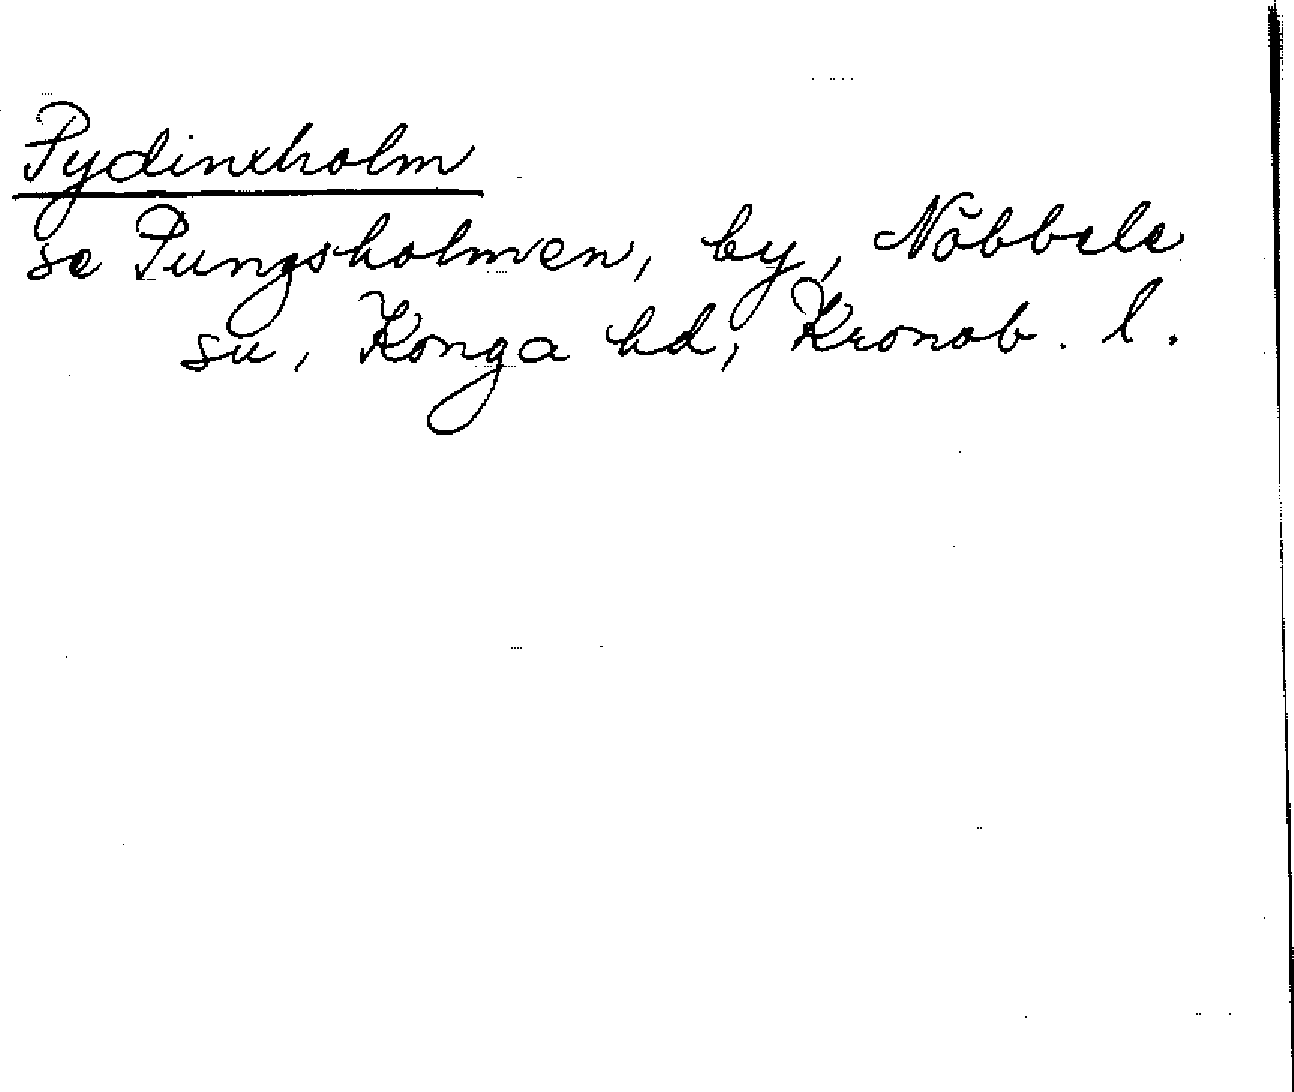 Pydinxholm
se Pungsholmen, by, Nöbbele
sn, Konga hd, Kronob. l.